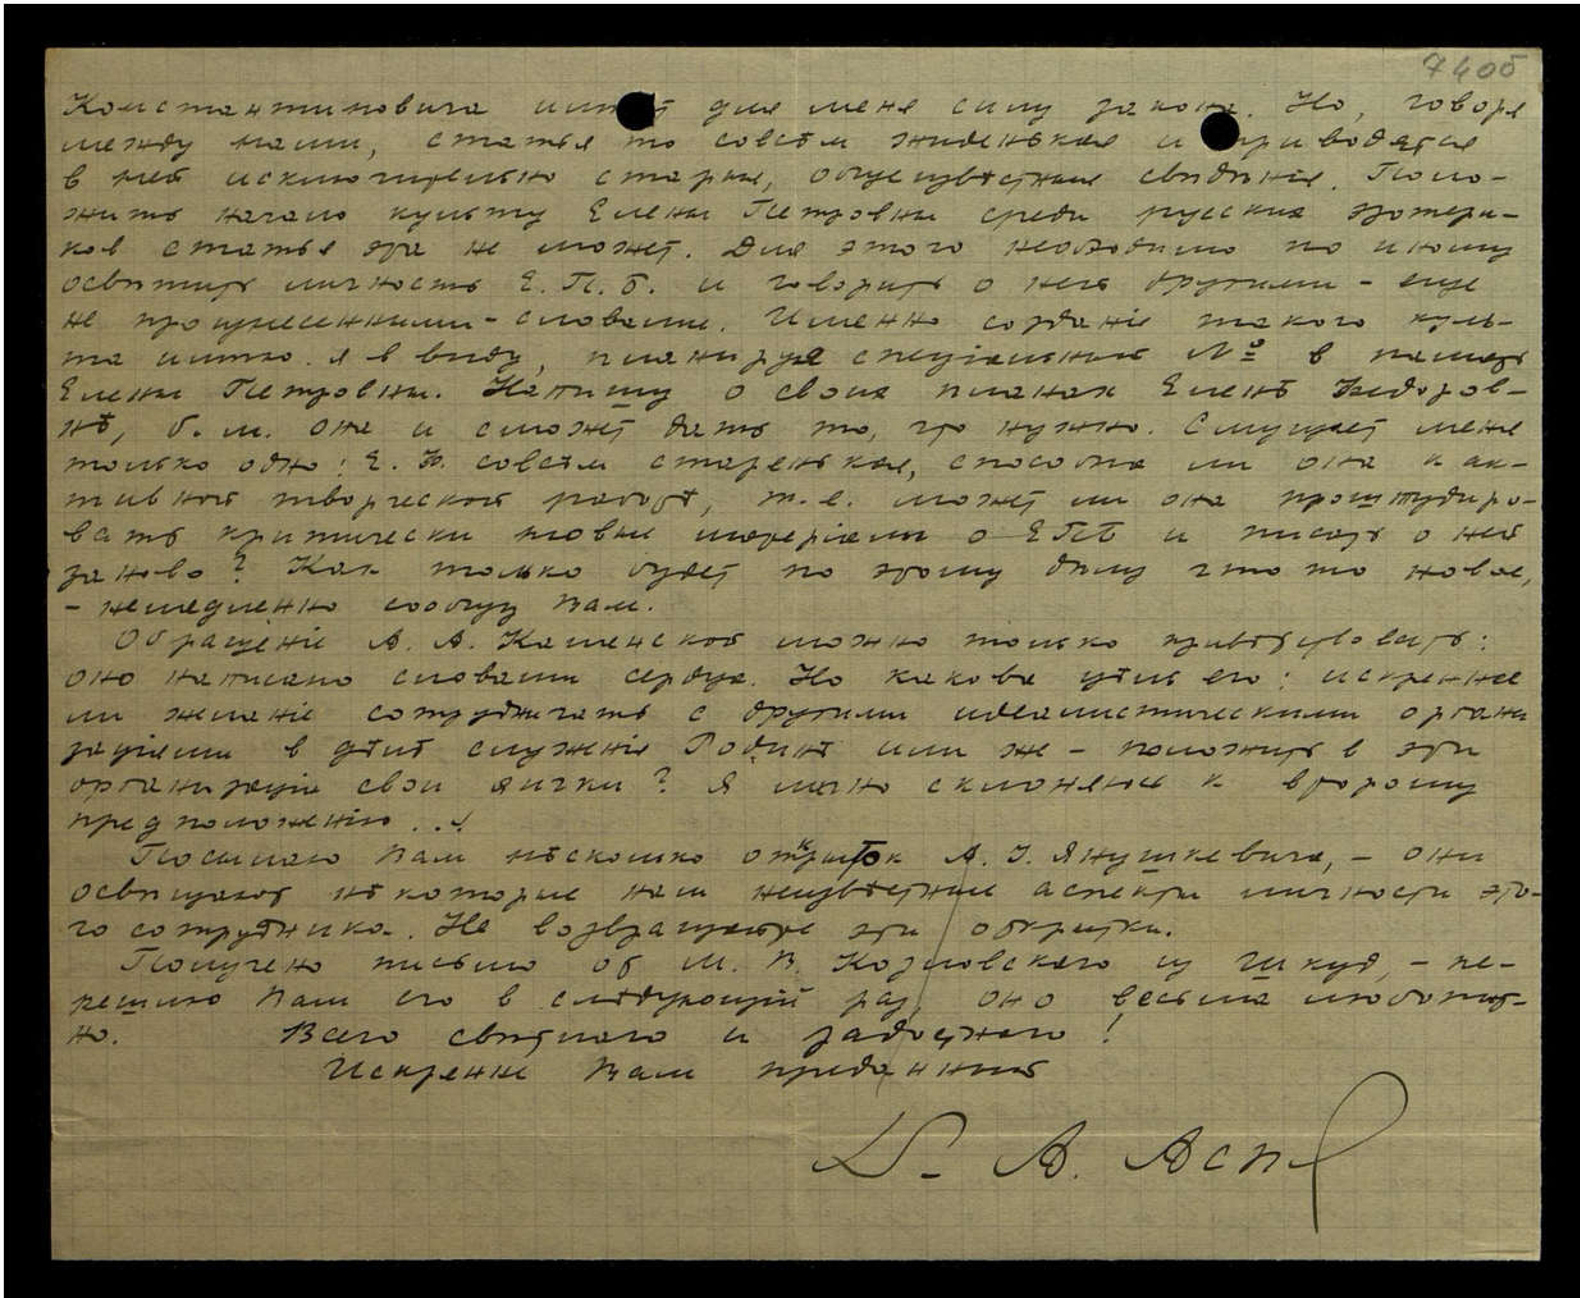 740об
Константиновича имѣет для меня силу закона. Но, говоря
между нами, статья то совсѣм жиденькая и приводятся
в ней исключительно старые, общеизвѣстные свѣдѣнія. Поло-
жить начало культу Елены Петровны среди русских эзотери-
ков статья эта не может. Для этого необходимо по иному
освѣтить личность Е.П.Б. и говорить о ней другими - еще
не произнесенными - словами. Именно созданіе такого куль-
та имѣю я в виду, планируя спеціальный № в память
Елены Петровны. Напишу о своих планах Еленѣ Федоров-
нѣ, б.м. она и сможет дать то, что нужно. Смущает меня
только одно: Е.Ф. совсѣм старенькая, способна ли она к ак-
тивной творческой работѣ, т.е. может ли она проштудиро-
вать критически новые матеріалы о ЕПБ и писать о ней
заново? Как только будет по этому дѣлу что то новое,
- немедленно сообщу Вам.
Обращеніе А.А. Каменской можно только привѣтствовать:
оно написано словами сердца. Но какова цѣль его: искреннее
ли желаніе сотрудничать с другими идеалистическими органи
заціями в дѣлѣ служенія Родинѣ или же - положить в эти
организаціи свои яички? Я лично склоняюсь к второму
предположенію...
Посылаю Вам нѣсколько открыток А.І. Янушкевича, - они
освѣщают нѣкоторые нам неизвѣстные аспекты личности это-
го сотрудника. Не возвращайте эти открытки.
Получено письмо от М.В. Козловского из Шкуд, - пе-
решлю Вам его в слѣдующій раз, оно весьма любопыт-
но. Всего свѣтлого и радостного!
Искренне Вам преданный
Д-р А. Асе